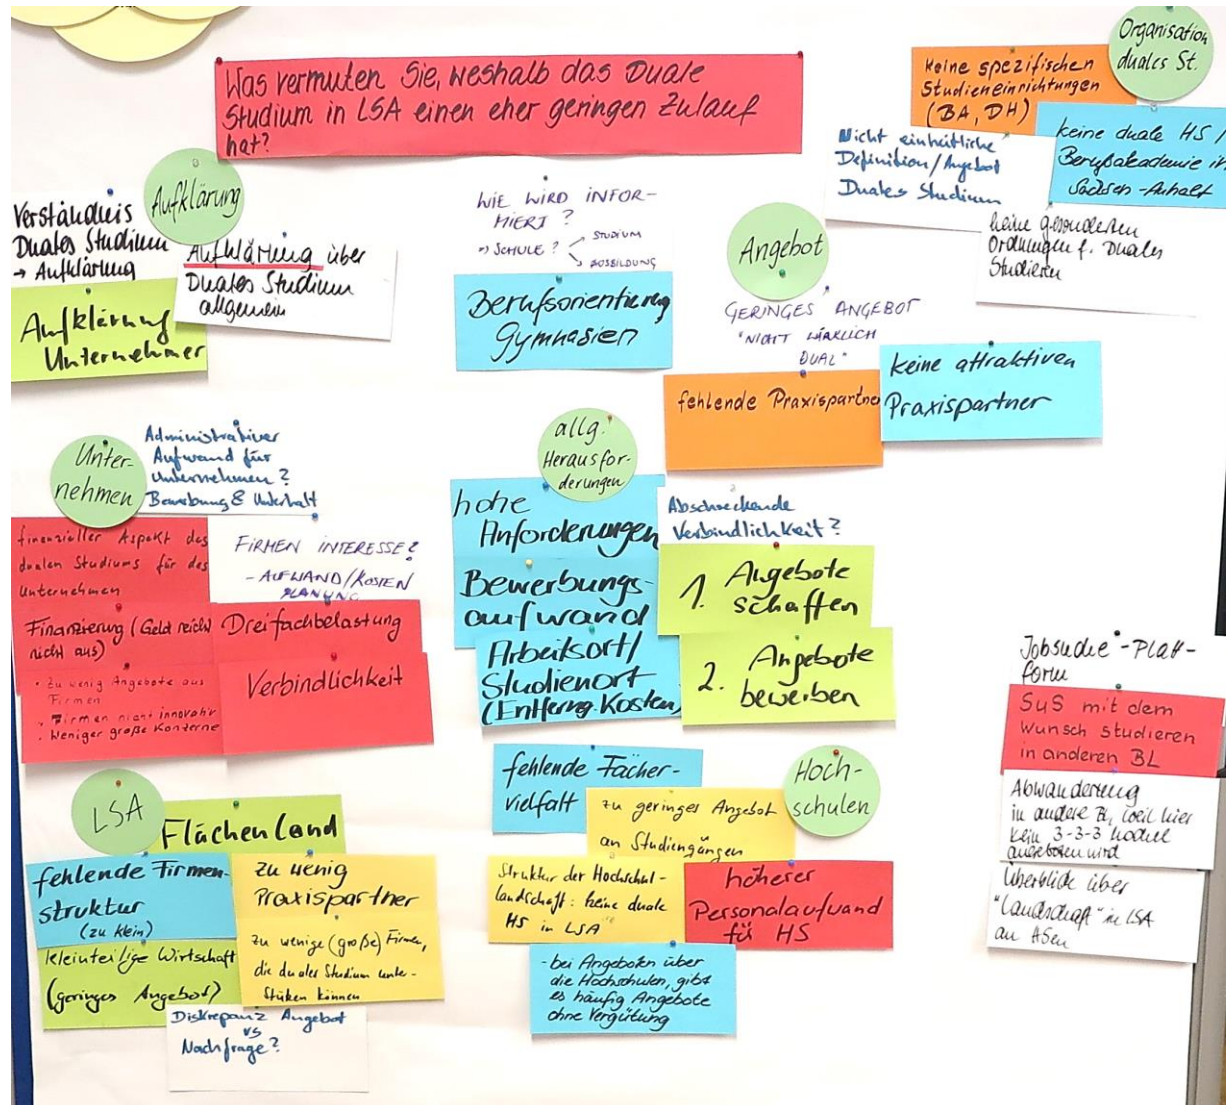 Was vermuten Sie, weshalb das Duale
Studium in LSA einen eher geringen Zulauf
hat?
Organisation
duales St.
Keine spezifischen
Studieneinrichtungen
(BA, DH)
keine duale HS /
Berufsakademie in
Sachsen-Anhalt
Nicht einheitliche
Definition/Angebot
Duales Studium
keine gesonderten
Ordnungen f. Duales
Studieren
Aufklärung
Verständnis
Duales Studium
→ Aufklärung
Aufklärung über
Duales Studium
allgemein
Aufklärung
Unternehmer
WIE WIRD INFOR-
MIERT?
=> SCHULE?
STUDIUM
AUSBILDUNG
Berufsorientierung
Gymnasien
Angebot
GERINGES ANGEBOT
"NICHT WIRKLICH
DUAL"
fehlende Praxispartner
keine attraktiven
Praxispartner
Unter-
nehmen
Administrativer
Aufwand für
Unternehmen?
Bewerbung & Unterhalt
finanzieller Aspekt des
dualen Studiums für des
Unternehmen
FIRMEN INTERESSE?
- AUFWAND/KOSTEN
PLANUNG
Finanzierung (Geld reicht
nicht aus)
Dreifachbelastung
• Zu wenig Angebote aus
Firmen
• Firmen nicht innovativ
• Weniger große Konzerne
Verbindlichkeit
allg.
Herausfor-
derungen
hohe
Anforderungen
Bewerbungs-
aufwand
Arbeitsort/
Studienort
(Entferng. Kosten)
Abschreckende
Verbindlichkeit?
1. Angebote
schaffen
2. Angebote
bewerben
Jobsuche-Platt-
form
SuS mit dem
Wunsch studieren
in anderen BL
Abwanderung
in andere BL, weil hier
kein 3-3-3 Modell
angeboten wird
Überblick über
"Landschaft" in LSA
an HSen
LSA
Flächenland
fehlende Firmen-
struktur
(zu klein)
zu wenig
Praxispartner
kleinteilige Wirtschaft
(geringes Angebot)
zu wenige (große) Firmen,
die duales Studium unter-
stüken können
Diskrepanz Angebot
vs
Nachfrage?
Hoch-
schulen
fehlende Fächer-
vielfalt
zu geringes Angebot
an Studiengängen
Struktur der Hochschul-
landschaft: keine duale
HS in LSA
höherer
Personalaufwand
für HS
- bei Angeboten über
die Hochschulen, gibt
es häufig Angebote
ohne Vergütung